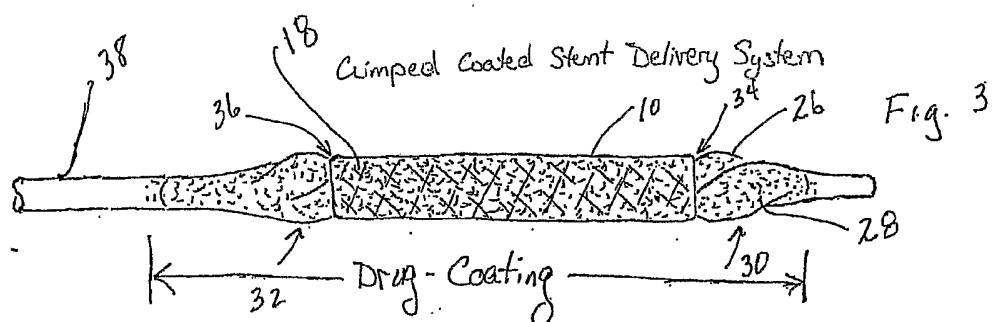 38
18
Crimped Coated Stent Delivery System
36
10
34
26
Fig. 3
28
30
32
Drug-Coating